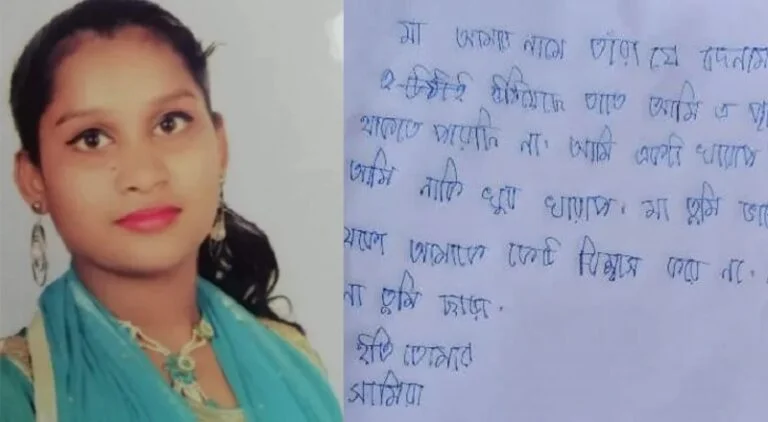 মা আমার নামে তাঁরা যে বদনাম
তাতে আমি এ
থাকতে পারেনি না। আমি একটা খারাপ
আমি নাকি খুব খারাপ। মা তুমি
আমাকে কেউ বিশ্বাস করে না।
না তুমি ছাড়া।
ইতি তোমার
সামিয়া